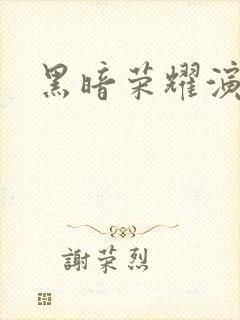 黑暗荣耀演
謝荣烈